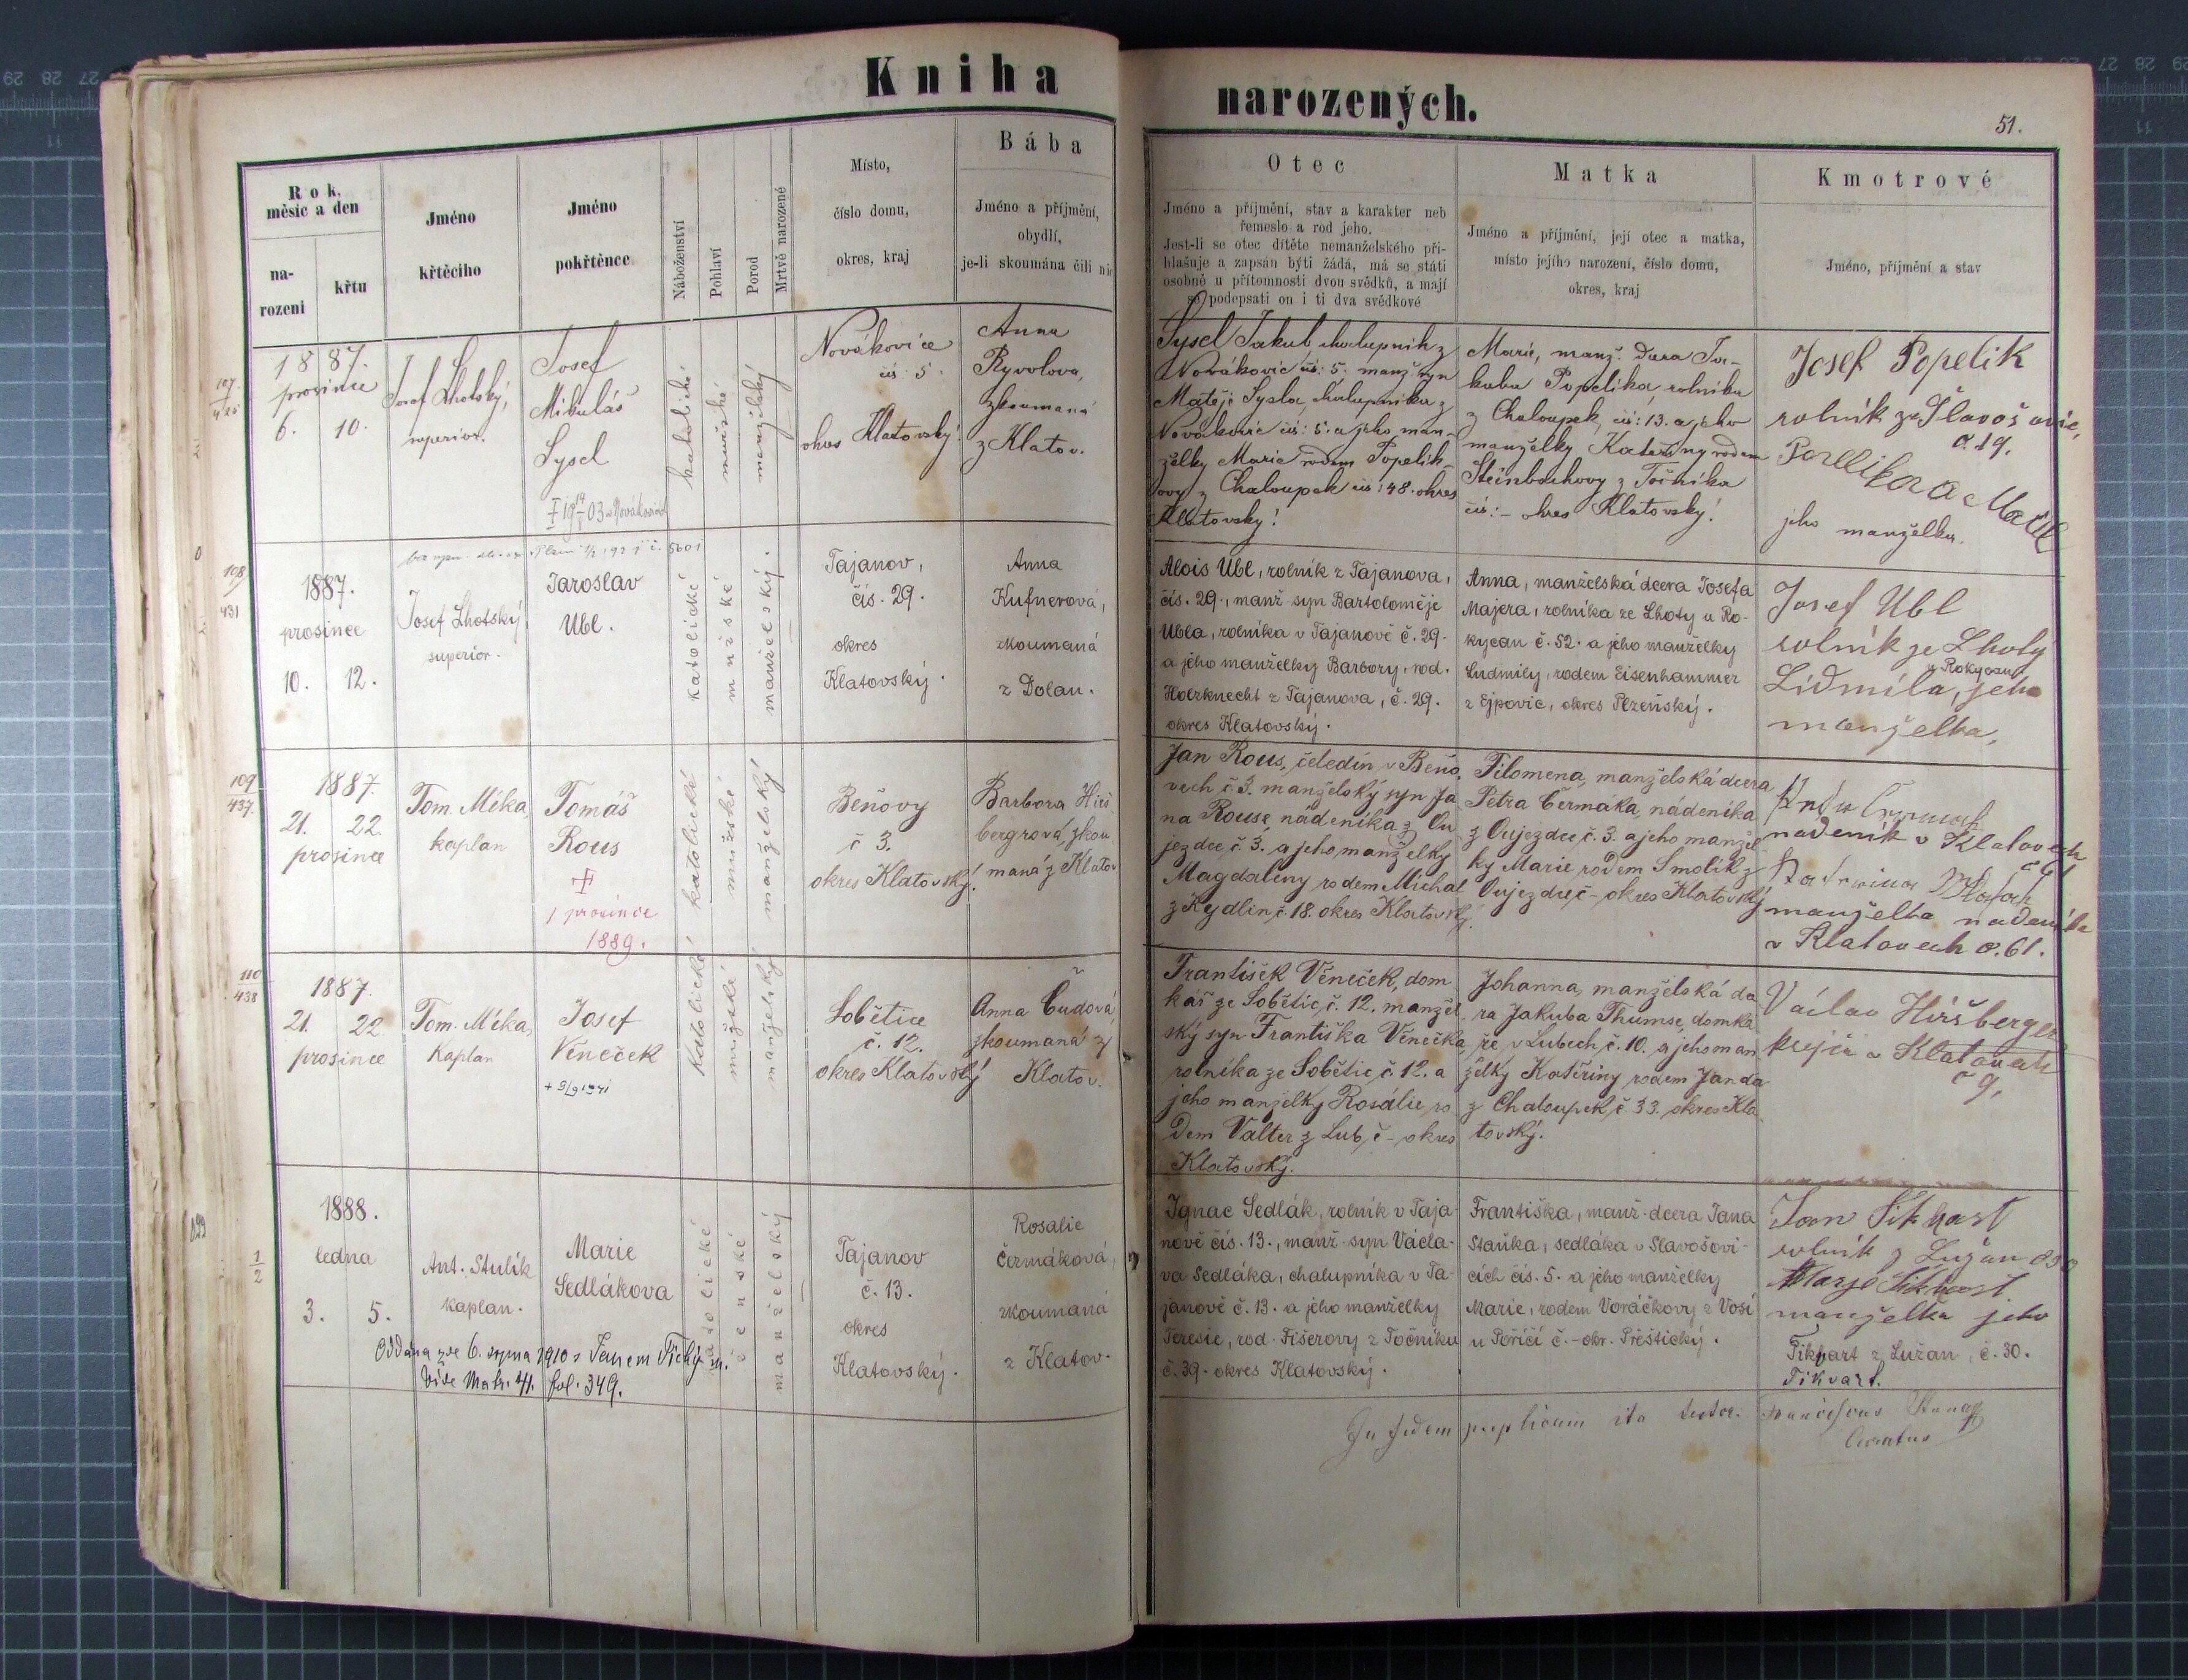 Kniha
narozených.
51.
Rok,
měsíc a den
na-
rozeni
křtu
Jméno
křtěcího
Jméno
pokřtěnce
Náboženství
Pohlaví
Porod
Mrtvě narozené
Místo,
číslo domu,
okres, kraj
Bába
Jméno a příjmění,
obydlí,
je-li skoumána čili nic
Otec
Jméno a příjmění, stav a karakter neb
řemeslo a rod jeho.
Jest-li se otec dítěte nemanželského při-
hlašuje a zapsán býti žádá, má se státi
osobně u přítomnosti dvou svědků, a mají
se podepsati on i ti dva svědkové
Matka
Jméno a příjmění, její otec a matka,
místo jejího narození, číslo domu,
okres, kraj
Kmotrové
Jméno, příjmění a stav
107
1887.
prosince
6. 10.
Josef Lhotský,
superior.
Josef
Mikuláš
Sysel
katolické
mužské
manželský
Novákovice
čís. 5.
okres Klatovský.
Anna
Ryvolova,
zkoumaná
z Klatov.
Sysel Jakub chalupník z
Novákovic čís: 5. manž. syn
Matěje Sysla, chalupníka z
Novákovic čís: 5. a jeho man-
želky Marie rodem Popelík-
ovy z Chaloupek čís: 48. okres
Klatovský!
Marie, manž. dcera Ja-
kuba Popelíka, rolníka
z Chaloupek, čís: 13. a jeho
manželky Kateřiny rodem
Steinbachovy z Točníka
čís: - okres Klatovský!
Josef Popelik
rolník ze Slavošovic,
č. 19.
jeho manželka.
108
431
1887.
prosince
10. 12.
Josef Lhotský,
superior.
Jaroslav
Ubl.
katolické
mužské
manželský.
Tajanov,
čís. 29.
okres
Klatovský.
Anna
Kufnerová,
zkoumaná
z Dolan.
Alois Ubl, rolník z Tajanova,
čís. 29., manž syn Bartoloměje
Ubla, rolníka v Tajanově č. 29.
a jeho manželky Barbory, rod.
Holzknecht z Tajanova, č. 29.
okres Klatovský.
Anna, manželská dcera Josefa
Majera, rolníka ze Lhoty u Ro-
kycan č. 52. a jeho manželky
Ludmily, rodem Eisenhammer
z Ejpovic, okres Plzeňský.
Josef Ubl
rolník ze Lhoty
u Rokycan
Lidmila, jeho
manželka,
109
437.
1887.
21. 22.
prosince
Tom. Míka,
kaplan
Tomáš
Rous
+
1 prosince
1889.
katolické
mužské
manželský
Beňovy
č 3.
okres Klatovský.
Barbora Hirš
bergrová, zkou
maná z Klatov
Jan Rous, čeledín v Beňo
vech č. 3. manželský syn Ja
na Rouse, nádeníka z Ou
jezdce, č. 3. a jeho manželky
Magdaleny rodem Michal
z Kydlin, č 18. okres Klatovský.
Filomena, manželská dcera
Petra Čermáka, nádeníka
z Oujezdce, č. 3. a jeho manžel
ky Marie rodem Smolík z
Oujezdce, č - okres Klatovský
nadeník v Klatovech
manželka nadeníka
v Klatovech č. 61.
110
438
1887.
21. 22
prosince
Tom. Míka,
Kaplan
Josef
Věneček
katolické
mužské
manželský
Sobětice
č. 12.
okres Klatovský
Anna Čudová,
zkoumaná z
Klatov.
František Věneček, dom
kář ze Sobětic, č. 12. manžel
ský syn Františka Věnečka,
rolníka ze Sobětic, č. 12. a
jeho manželky Rosálie, ro
dem Valter z Lub, č - okres
Klatovský.
Johanna, manželská dce
ra Jakuba Thumse, domká
ře v Lubech, č. 10. a jeho man
želky Kateřiny rodem Janda
z Chaloupek, č. 33. okres Kla
tovský.
Vaclav Hiršberger
krejčí v Klatovech
č 9,
1
2
1888.
ledna
3. 5.
Ant. Stulík
kaplan.
Marie
Sedlákova
katolické
ženské
manželský
Oddána zde 6. srpna 1910 s Janem Tichým.
Vide Matr. 41. fol. 349.
Tajanov
č. 13.
okres
Klatovský.
Rosalie
Čermáková,
zkoumaná
z Klatov.
Ignac Sedlák, rolník v Taja
nově čís. 13., manž. syn Václa-
va Sedláka, chalupníka v Ta-
janově č. 13. a jeho manželky
Teresie, rod. Fišerovy z Točníku
č. 39. okres Klatovský.
Františka, manž. dcera Jana
Staňka, sedláka v Slavošovi-
cích čís. 5. a jeho manželky
Marie, rodem Voráčkovy z Vosí
u Poříčí č. - okr. Přeštický.
Jan Tikhart
rolník z Lužan č 30
manželka jeho
Tikhart z Lužan, č. 30.
Tikvart.
In fidem duplicum ita testor. Franciscus
Curatus